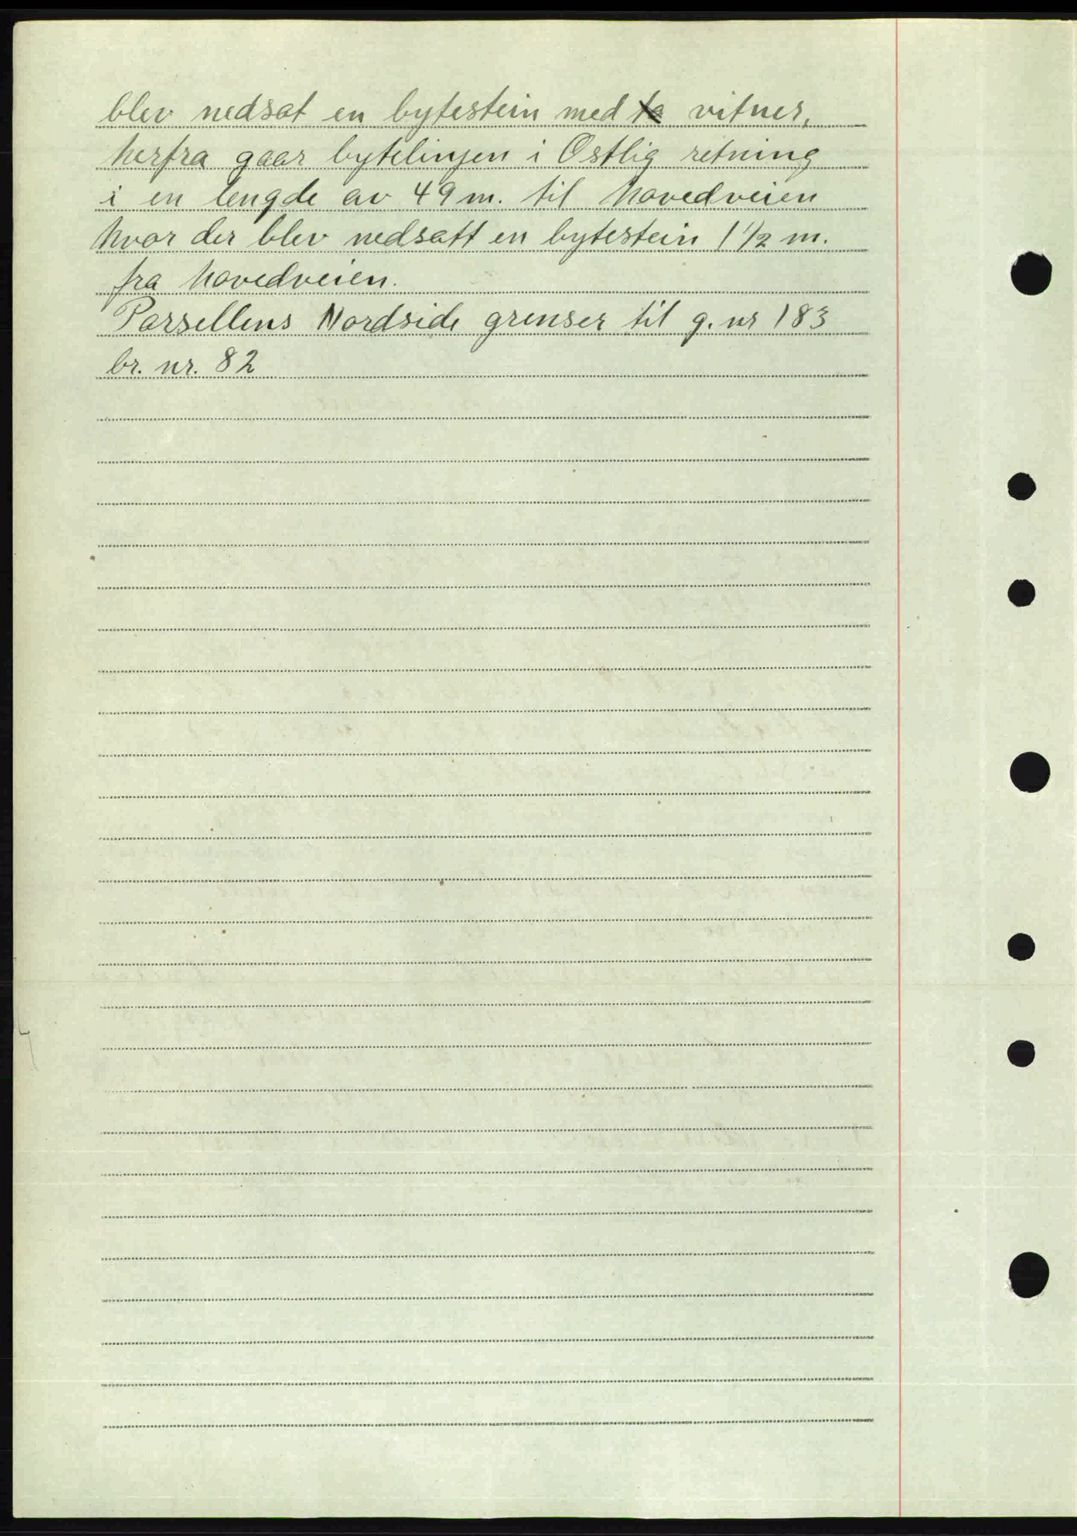 blev nedsat en bytestein med to vitner,
herfra gaar bytelinjen i Østlig retning
i en lengde av 49 m. til hovedveien
hvor der blev nedsatt en bytestein 1 1/2 m.
fra hovedveien.
Parsellens Nordside grenser til g. nr 183
br. nr. 82